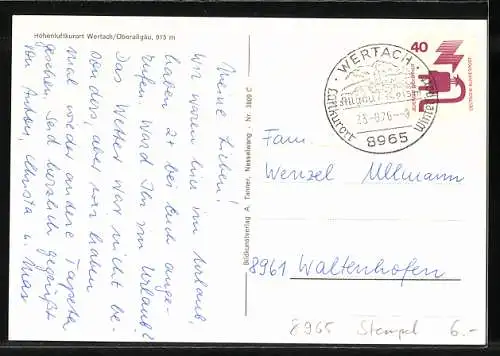 Höhenluftkurort Wertach/Oberallgäu, 915 m
Meine Lieben!
Wir waren hier im Urlaub,
haben 2x bei Euch ange-
rufen. Ward Ihr im Urlaub?
Das Wetter war nicht be-
sonders, aber wir haben
mal wieder andere Tapeten
gesehen. Seid herzlich gegrüßt
von Anton, Christa u. Max
Bildkunstverlag A. Tanner, Nesselwang. Nr. 3809 C
· WERTACH ·
Allgäu 915m
23.-9.76-
Luftkurort
8965
40
DEUTSCHE BUNDESPOST
Fam.
Wenzel Ullmann
8961 Waltenhofen
8965 Stempel 6.-